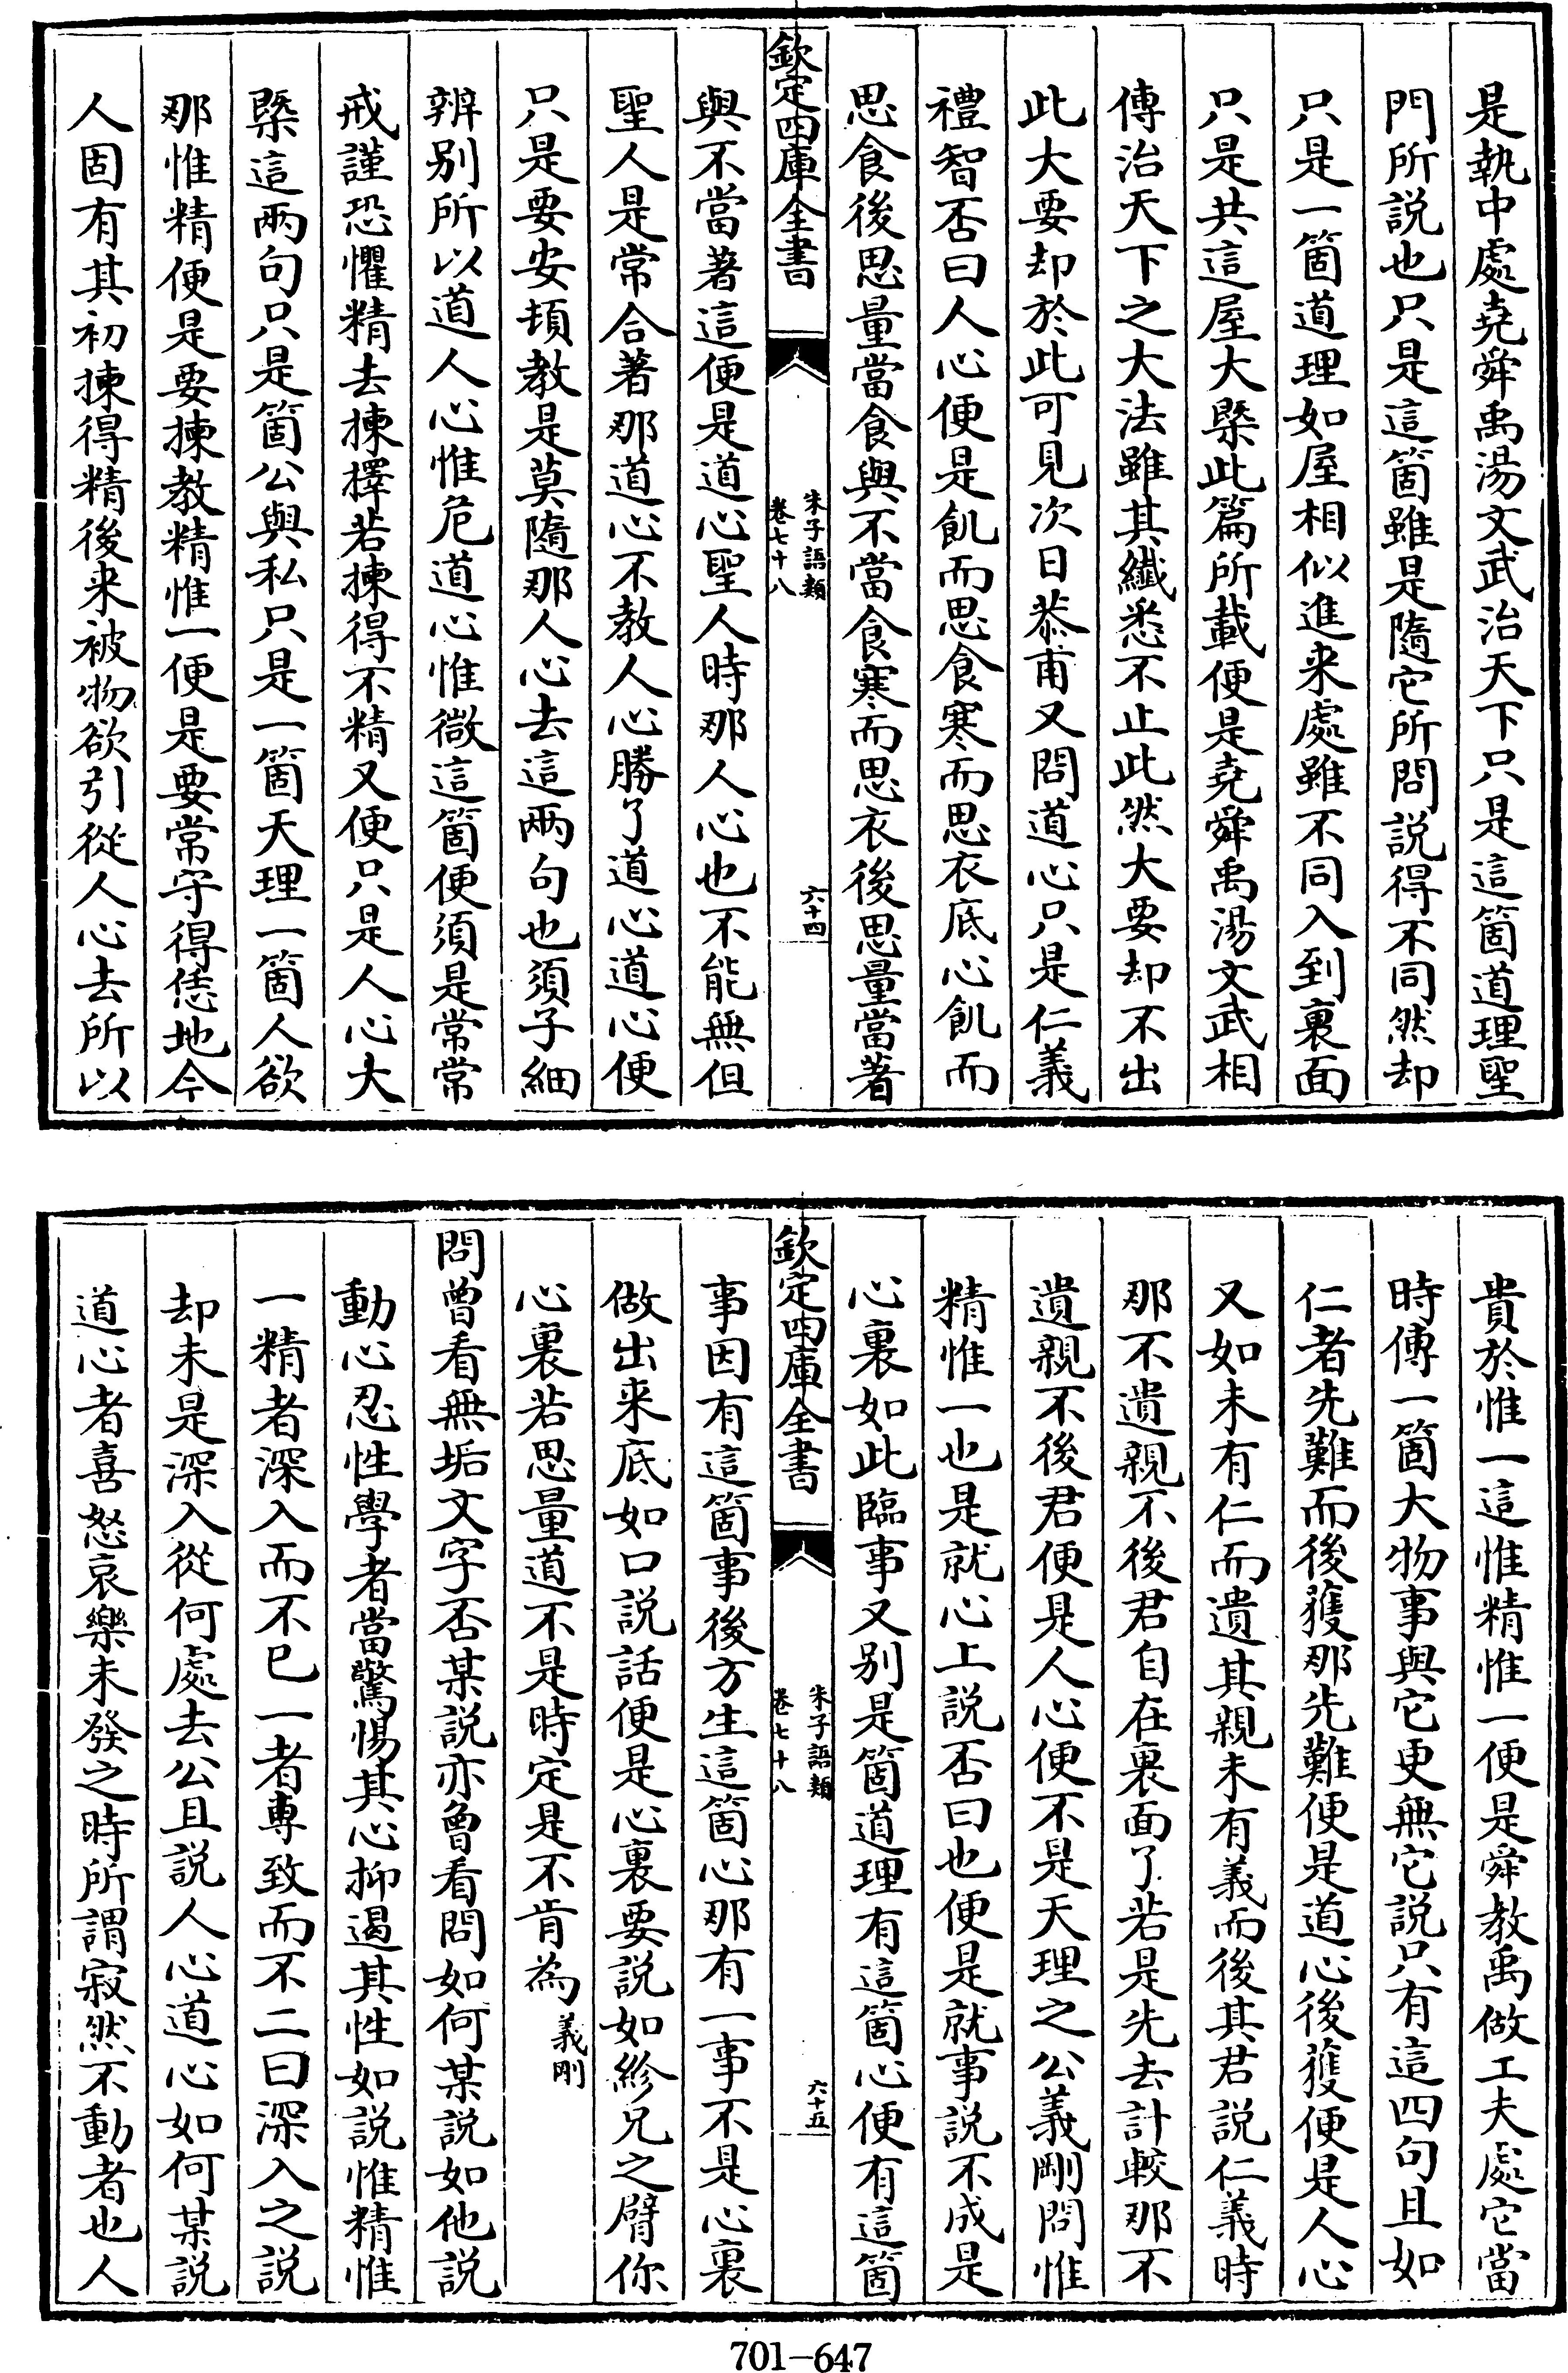 是執中處堯舜禹湯文武治天下只是這箇道理聖
門所説也只是這箇雖是隨它所問説得不同然却
只是一箇道理如屋相似進来處雖不同入到裏面
只是共這屋大槩此篇所載便是堯舜禹湯文武相
傳治天下之大法雖其纖悉不止此然大要却不出
此大要却於此可見次日恭甫又問道心只是仁義
禮智否曰人心便是飢而思食寒而思衣底心飢而
思食後思量當食與不當食寒而思衣後思量當著
欽定四庫全書
朱子語類
卷七十八
六十四
與不當著這便是道心聖人時那人心也不能無但
聖人是常合著那道心不教人心勝了道心道心便
只是要安頓教是莫隨那人心去這兩句也須子細
辨别所以道人心惟危道心惟微這箇便須是常常
戒謹恐懼精去揀擇若揀得不精又便只是人心大
槩這兩句只是箇公與私只是一箇天理一箇人欲
那惟精便是要揀教精惟一便是要常守得恁地今
人固有其初揀得精後来被物欲引從人心去所以
貴於惟一這惟精惟一便是舜教禹做工夫處它當
時傳一箇大物事與它更無它説只有這四句且如
仁者先難而後獲那先難便是道心後獲便是人心
又如未有仁而遺其親未有義而後其君説仁義時
那不遺親不後君自在裏面了若是先去計較那不
遺親不後君便是人心便不是天理之公義剛問惟
精惟一也是就心上説否曰也便是就事説不成是
心裏如此臨事又别是箇道理有這箇心便有這箇
欽定四庫全書
朱子語類
卷七十八
六十五
事因有這箇事後方生這箇心那有一事不是心裏
做出来底如口説話便是心裏要説如紾兄之臂你
心裏若思量道不是時定是不肯為義剛
問曾看無垢文字否某説亦曾看問如何某説如他説
動心忍性學者當驚惕其心抑遏其性如説惟精惟
一精者深入而不已一者專致而不二曰深入之説
却未是深入從何處去公且説人心道心如何某説
道心者喜怒哀樂未發之時所謂寂然不動者也人
701-647